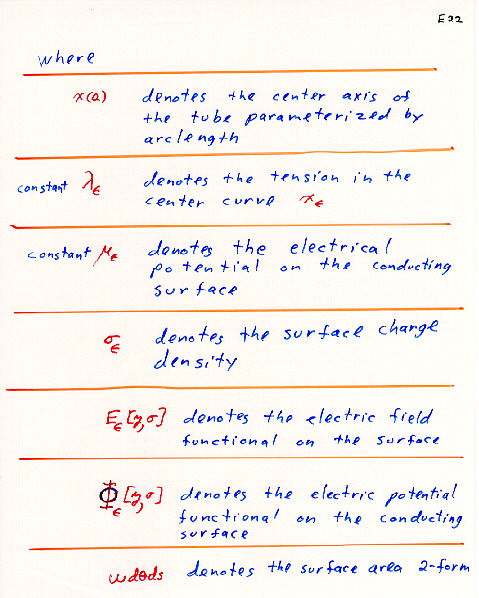 E22
where
x(s) denotes the center axis of
the tube parameterized by
arclength
constant λ_ϵ denotes the tension in the
center curve x_ϵ
constant μ_ϵ denotes the electrical
potential on the conducting
surface
σ_ϵ denotes the surface charge
density
E_ϵ[y,σ] denotes the electric field
functional on the surface
Φ_ϵ[y,σ] denotes the electric potential
functional on the conducting
surface
wdθds denotes the surface area 2-form